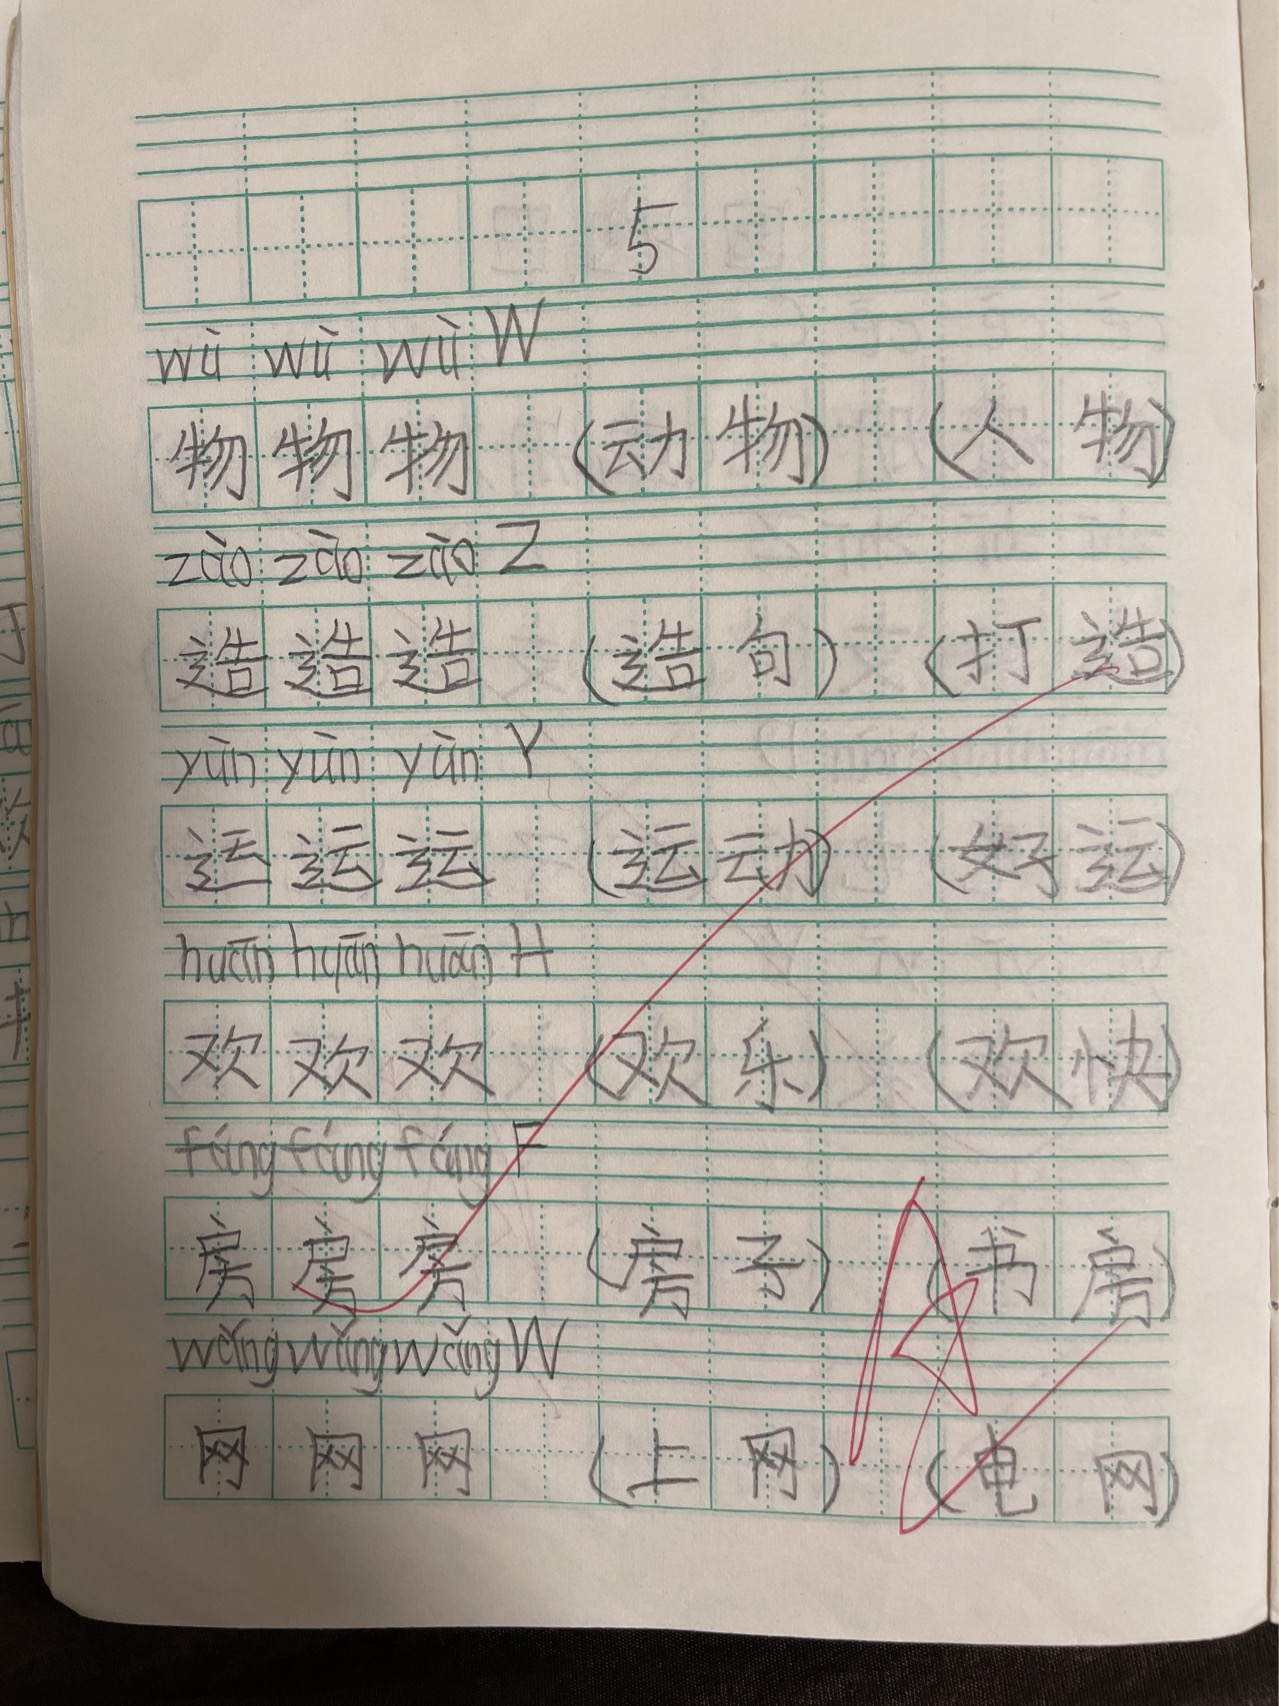 5
wù wù wù W
物 物 物 (动 物) (人 物)
zào zào zào Z
造 造 造 (造 句) (打 造)
yùn yùn yùn Y
运 运 运 (运 动) (好 运)
huān huān huān H
欢 欢 欢 (欢 乐) (欢 快)
fáng fáng fáng F
房 房 房 (房 子) (书 房)
wǎng wǎng wǎng W
网 网 网 (上 网) (电 网)